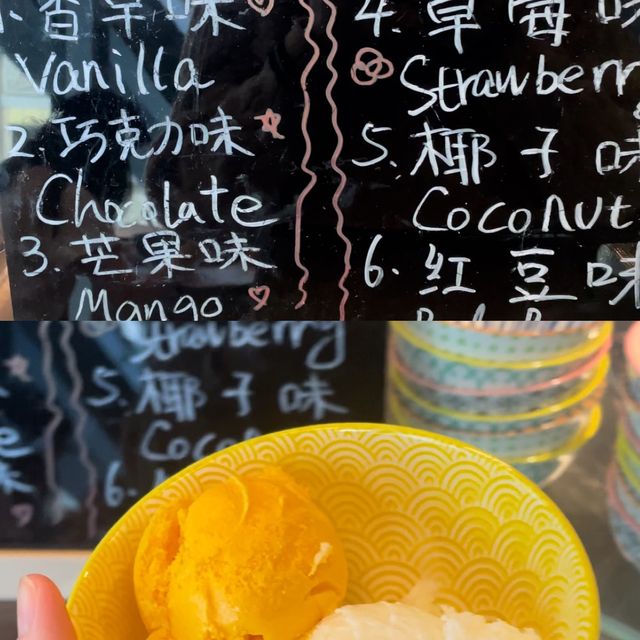 1.香草味
Vanilla
2 巧克力味
Chocolate
3.芒果味
Mango
4.草莓味
Strawberry
5.椰子味
Coconut
6.紅豆味
Strawberry
5.椰子味
Coco
6.